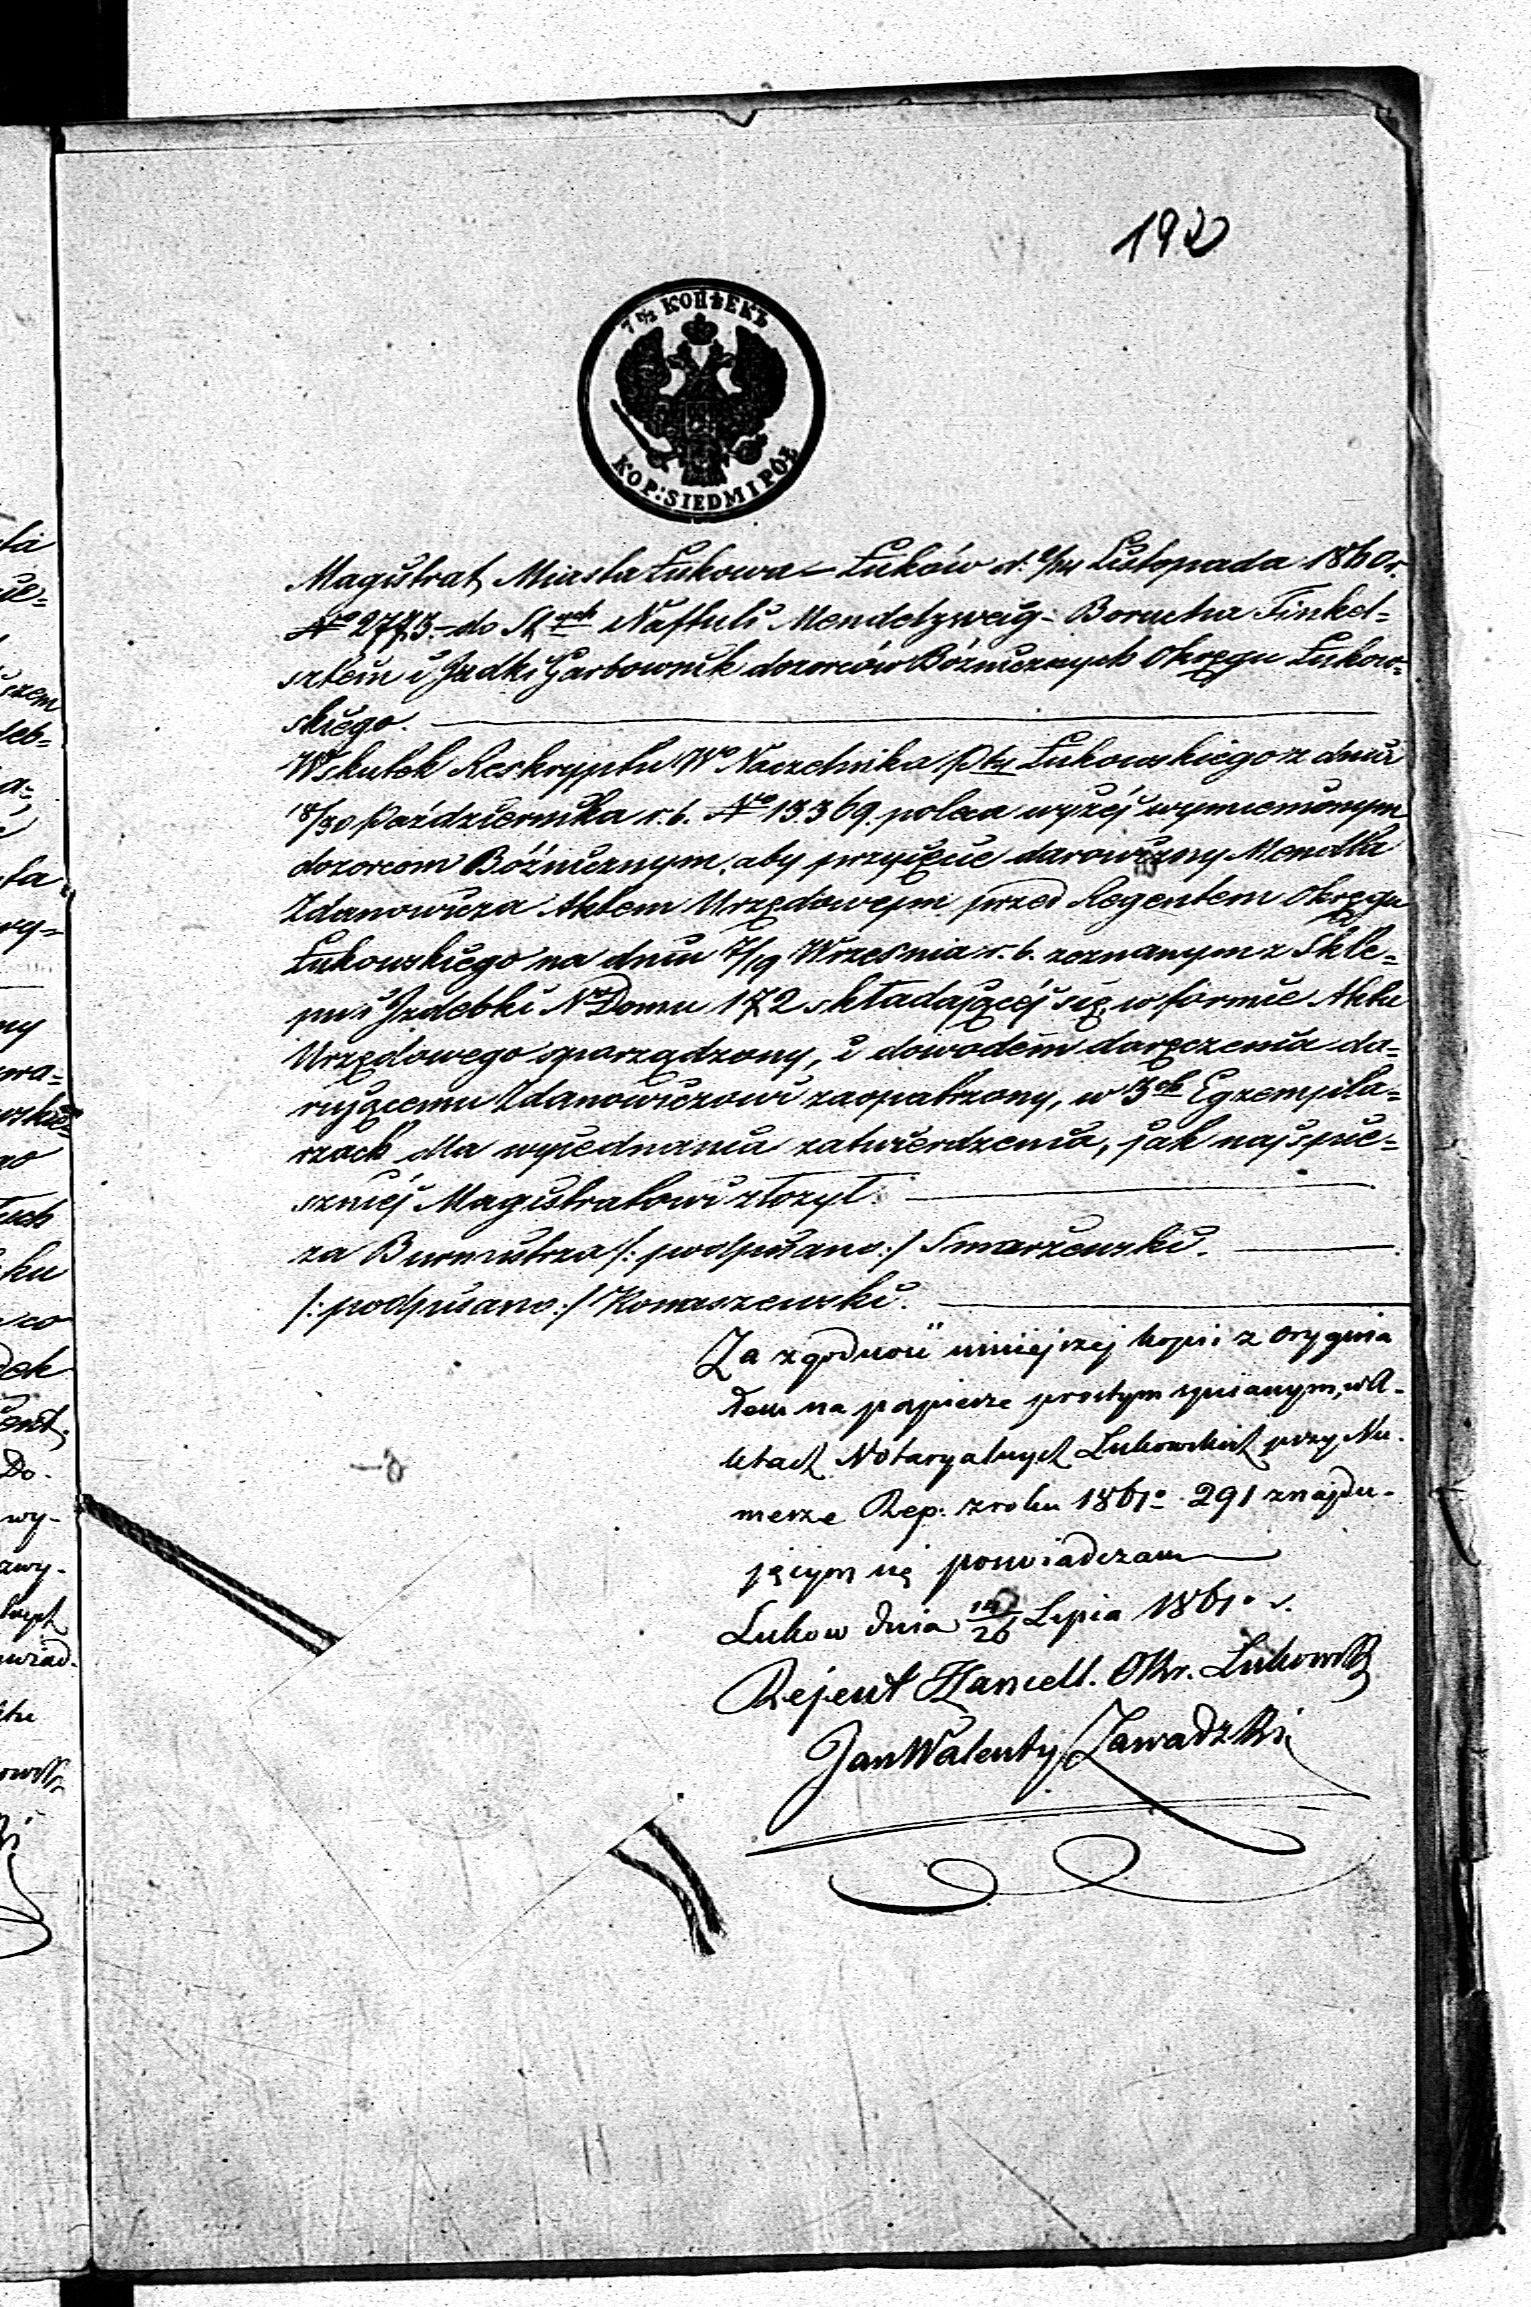 192
7 1/2 КОПѢЕКЪ
KOP: SIEDM I PÓŁ
Magistrat Miasta Łukowa – Łuków d. Listopada 1860 r.
No do St. Naftuli Mendelzweig – Borucha Finkel-
sztein i Judki Garbownik dozorców Bóżnicznych Okręgu Łukow-
skiego.
Wskutek Reskryptu Wo Naczelnika Ptu Łukowskiego z dnia
18/30 Października r. b. No 13369 poleca wyżéj wymienionym
dozorcom Bóżnicznym, aby przyjęcie darowizny Mendla
Zdanowicza Aktem Urzędowym przed Regentem Okręgu
Łukowskiego na dniu 7/19 Września r. b. zeznanym z Skle-
pu i Izdebki No Domu 172 składającéj się, w formie Aktu
Urzędowego sporządzony, i dowodem doręczenia da-
rującemu Zdanowiczowi zaopatrzony, w 3ch Egzempla-
rzach dla wyjednania zatwierdzenia, jak najspie-
szniéj Magistratowi złożył.
za Burmistrza /: podpisano :/ Smarzewski.
/: podpisano :/ Romaszewski.
Za zgodność niniejszej kopii z orygina
łem na papierze prostym spisanym, w A-
ktach Notaryalnych Łukowskich przy Nu-
merze Rep. z roku 1861o 291 znajdu-
jącym się poswiadczam
Łukow dnia 14/26 Lipca 1861o r.
Rejent Kancell. Okr. Łukowsk
Jan Walenty Zawadzki